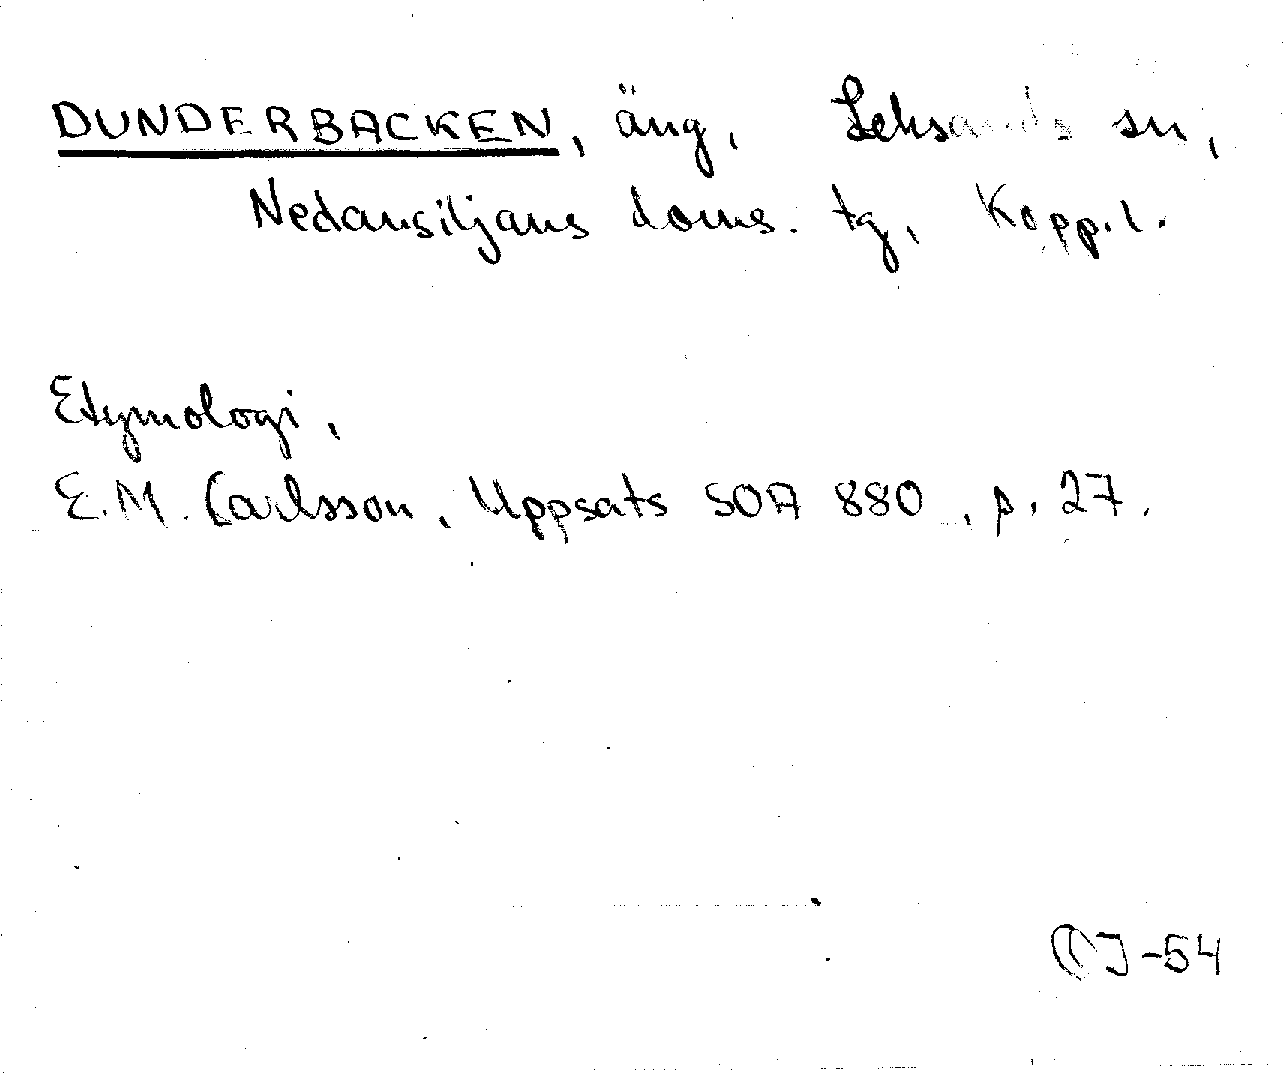 DUNDERBACKEN, äng, Leksands sn,
Nedansiljans doms. tg, Kopp.l.
Etymologi,
E.M. Carlsson, Uppsats SOA 880, p. 27.
-54